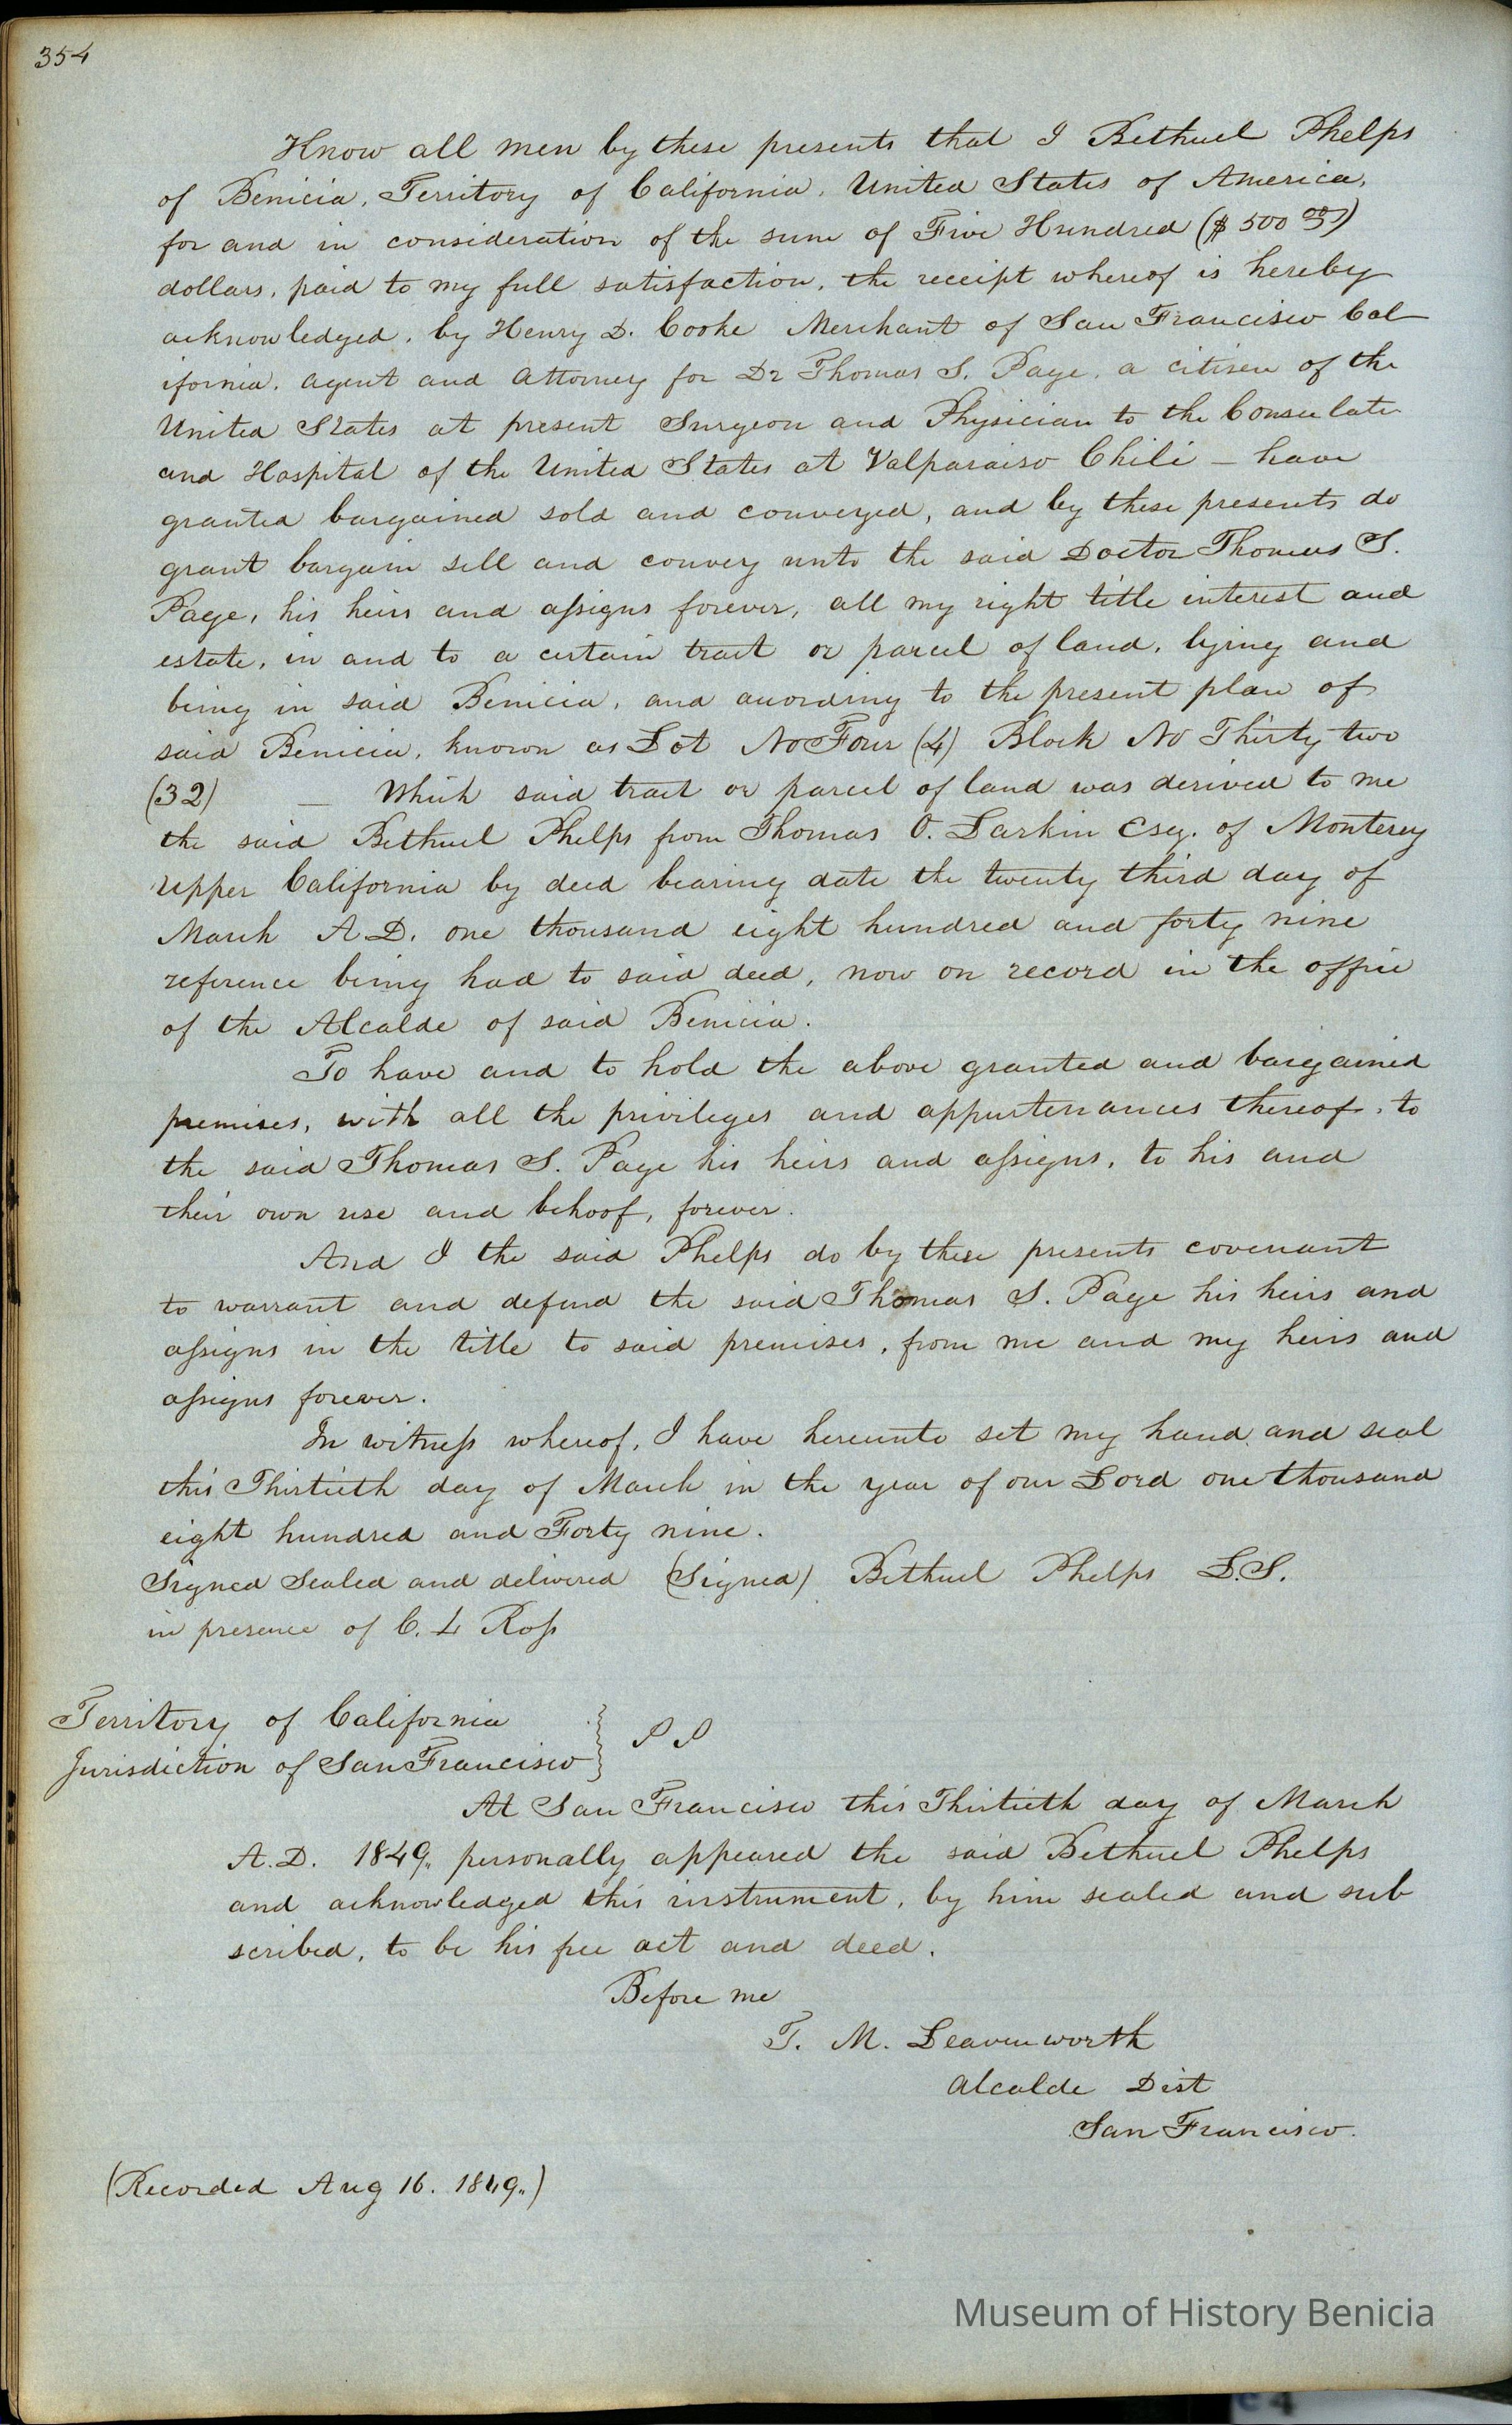 354
Know all men by these presents that I Bethuel Phelps
of Benicia, Territory of California, United States of America,
for and in consideration of the sum of Five Hundred ($500 00/100)
dollars, paid to my full satisfaction, the receipt whereof is hereby
acknowledged, by Henry D. Cooke Merchant of San Francisco Cal
ifornia, agent and attorney for Dr Thomas S. Page, a citisen of the
United States at present Surgeon and Physician to the Consulate
and Hospital of the United States at Valparaiso Chili – have
granted bargained sold and conveyed, and by these presents do
grant bargain sell and convey unto the said Doctor Thomas S.
Page, his heirs and assigns forever, all my right title interest and
estate, in and to a certain tract or parcel of land, lying and
being in said Benicia, and according to the present plan of
said Benicia, known as Lot No Four (4) Block No Thirty two
(32) – Which said tract or parcel of land was derived to me
the said Bethuel Phelps from Thomas O. Larkin Esq. of Monterey
Upper California by deed bearing date the twenty third day of
March A.D. one thousand eight hundred and forty nine
reference being had to said deed, now on record in the office
of the Alcalde of said Benicia.
To have and to hold the above granted and bargained
premises, with all the privileges and appurtenances thereof, to
the said Thomas S. Page his heirs and assigns, to his and
their own use and behoof, forever.
And I the said Phelps do by these presents covenant
to warrant and defend the said Thomas S. Page his heirs and
assigns in the title to said premises, from me and my heirs and
assigns forever.
In witness whereof, I have hereunto set my hand and seal
this Thirtieth day of March in the year of our Lord one thousand
eight hundred and Forty nine.
Signed Sealed and delivered (Signed) Bethuel Phelps L.S.
in presence of C. L Ross
Territory of California
Jurisdiction of San Francisco } SS
At San Francisco this Thirtieth day of March
A.D. 1849, personally appeared the said Bethuel Phelps
and acknowledged this instrument, by him sealed and sub
scribed, to be his free act and deed.
Before me
T. M. Leavenworth
Alcalde Dist
San Francisco.
(Recorded Aug 16. 1849.)
Museum of History Benicia